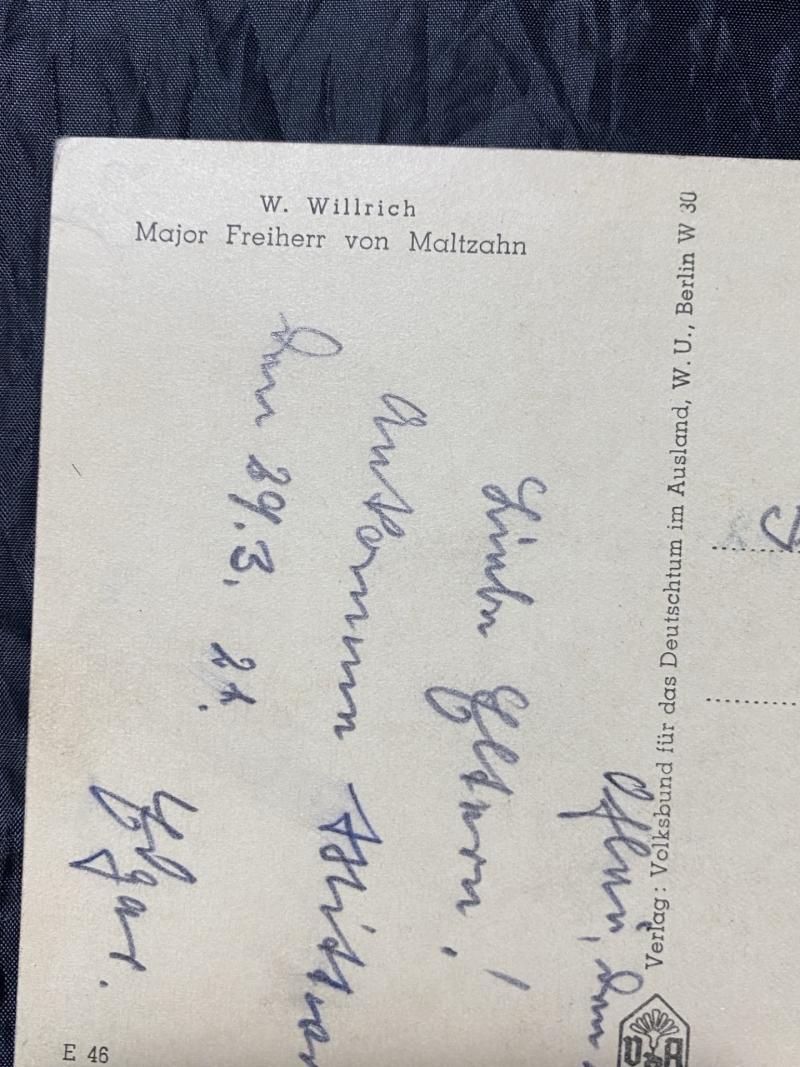 W. Willrich
Major Freiherr von Maltzahn
Verlag: Volksbund für das Deutschtum im Ausland, W. U., Berlin W 30
den
Liebe Eltern!
Ankommen
den 29.3. 21.
Edgar.
E 46
VDA